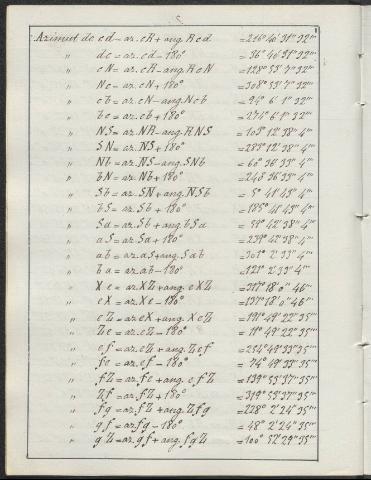 Azimut de cd = az. cR + ang. Rcd = 216° 40' 31" 32'''
" dc = az. cd - 180° = 36° 40' 31" 32'''
" cN = az. cR - ang. RcN = 128° 53' 7" 32'''
" Nc = az. cN + 180° = 308° 53' 7" 32'''
" cb = az. cN - ang. Ncb = 94° 6' 1" 32'''
" bc = az. cb + 180° = 274° 6' 1" 32'''
" NS = az. NR - ang. RNS = 103° 12' 38" 4'''
" SN = az. NS + 180° = 283° 12' 38" 4'''
" Nb = az. NS - ang. SNb = 60° 36' 33" 4'''
" bN = az. Nb + 180° = 240° 36' 33" 4'''
" Sb = az. SN + ang. NSb = 5° 41' 43" 4'''
" bS = az. Sb + 180° = 185° 41' 43" 4'''
" Sa = az. Sb + ang. bSa = 51° 42' 38" 4'''
" aS = az. Sa + 180° = 231° 42' 38" 4'''
" ab = az. aS + ang. Sab = 301° 2' 33" 4'''
" ba = az. ab - 180° = 121° 2' 33" 4'''
" Xe = az. XZ + ang. eXZ = 317° 18' 0" 46'''
" eX = az. Xe - 180° = 137° 18' 0" 46'''
" eZ = az. eX + ang. XeZ = 191° 49' 22" 35'''
" Ze = az. eZ - 180° = 11° 49' 22" 35'''
" ef = az. eZ + ang. Zef = 254° 49' 33" 35'''
" fe = az. ef - 180° = 74° 49' 33" 35'''
" fZ = az. fe + ang. efZ = 139° 53' 37" 35'''
" Zf = az. fZ + 180° = 319° 53' 37" 35'''
" fg = az. fZ + ang. Zfg = 228° 2' 24" 35'''
" gf = az. fg - 180° = 48° 2' 24" 35'''
" gZ = az. gf + ang. fgZ = 100° 52' 29" 35'''